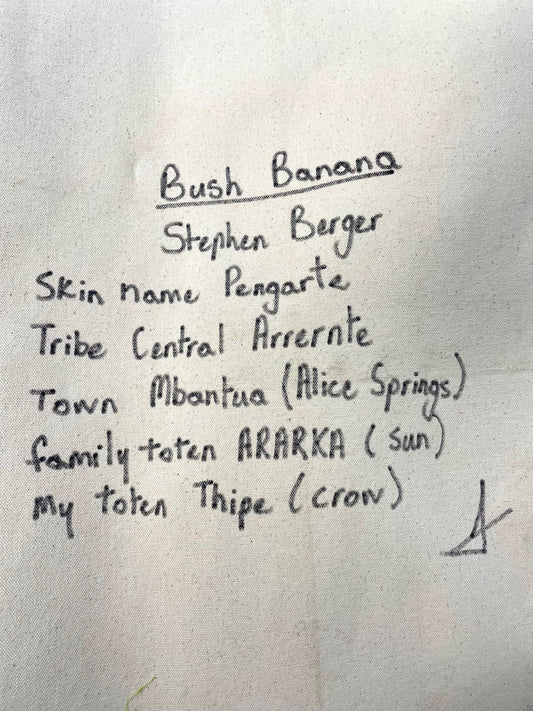 Bush Banana
Stephen Berger
Skin name Pengarte
Tribe Central Arrernte
Town Mbantua (Alice Springs)
family toten ARARKA (sun)
My toten Thipe (crow)